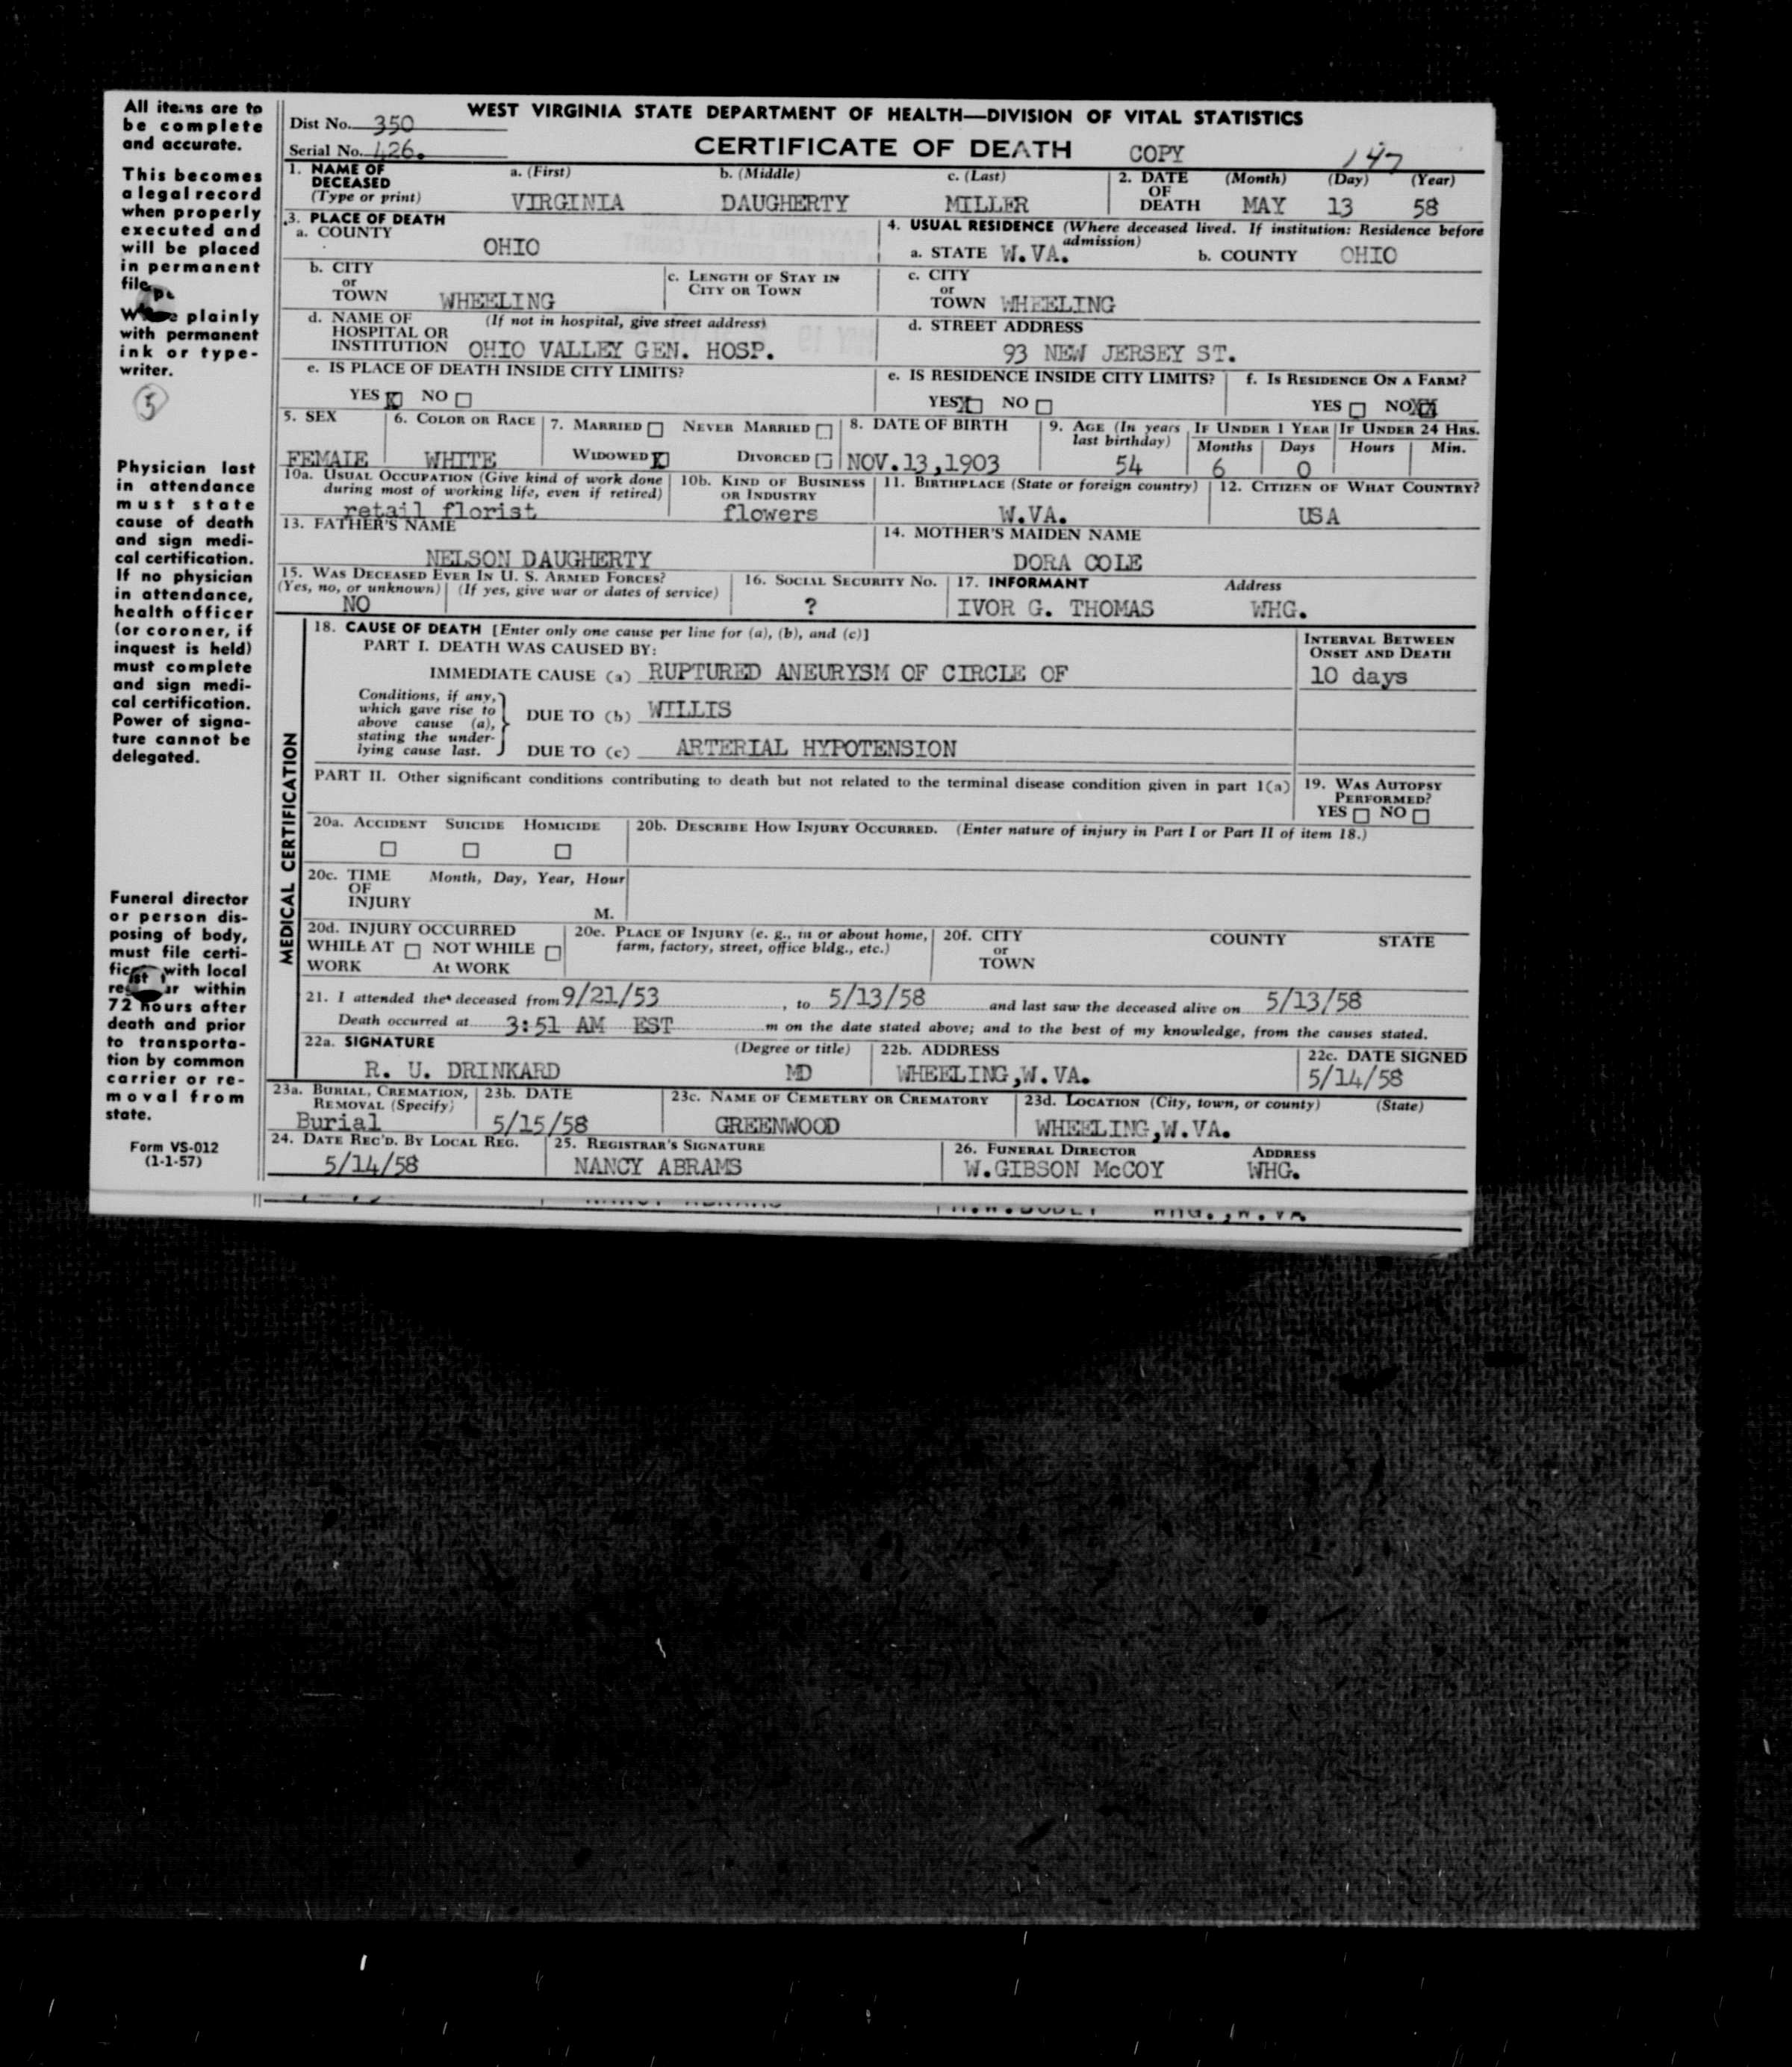 WEST VIRGINIA STATE DEPARTMENT OF HEALTH—DIVISION OF VITAL STATISTICS
Dist No. 350
Serial No. 426.
CERTIFICATE OF DEATH COPY 147
1. NAME OF DECEASED (Type or print)
a. (First) b. (Middle) c. (Last)
VIRGINIA DAUGHERTY MILLER
2. DATE OF DEATH (Month) (Day) (Year)
MAY 13 58
3. PLACE OF DEATH
a. COUNTY
OHIO
4. USUAL RESIDENCE (Where deceased lived. If institution: Residence before admission)
a. STATE W.VA. b. COUNTY OHIO
b. CITY or TOWN WHEELING
c. LENGTH OF STAY IN CITY OR TOWN
c. CITY or TOWN WHEELING
d. NAME OF HOSPITAL OR INSTITUTION (If not in hospital, give street address)
OHIO VALLEY GEN. HOSP.
d. STREET ADDRESS
93 NEW JERSEY ST.
e. IS PLACE OF DEATH INSIDE CITY LIMITS?
YES X NO
e. IS RESIDENCE INSIDE CITY LIMITS?
YES X NO
f. IS RESIDENCE ON A FARM?
YES NO XX
5. SEX
FEMALE
6. COLOR OR RACE
WHITE
7. MARRIED NEVER MARRIED
WIDOWED X DIVORCED
8. DATE OF BIRTH
NOV.13,1903
9. AGE (In years last birthday)
54
IF UNDER 1 YEAR IF UNDER 24 HRS.
Months Days Hours Min.
6 0
10a. USUAL OCCUPATION (Give kind of work done during most of working life, even if retired)
retail florist
10b. KIND OF BUSINESS OR INDUSTRY
flowers
11. BIRTHPLACE (State or foreign country)
W.VA.
12. CITIZEN OF WHAT COUNTRY?
USA
13. FATHER'S NAME
NELSON DAUGHERTY
14. MOTHER'S MAIDEN NAME
DORA COLE
15. WAS DECEASED EVER IN U. S. ARMED FORCES?
(Yes, no, or unknown) (If yes, give war or dates of service)
NO
16. SOCIAL SECURITY NO.
?
17. INFORMANT Address
IVOR G. THOMAS WHG.
MEDICAL CERTIFICATION
18. CAUSE OF DEATH [Enter only one cause per line for (a), (b), and (c)]
PART I. DEATH WAS CAUSED BY:
INTERVAL BETWEEN ONSET AND DEATH
IMMEDIATE CAUSE (a) RUPTURED ANEURYSM OF CIRCLE OF
10 days
Conditions, if any, which gave rise to above cause (a), stating the underlying cause last.
DUE TO (b) WILLIS
DUE TO (c) ARTERIAL HYPOTENSION
PART II. Other significant conditions contributing to death but not related to the terminal disease condition given in part 1(a)
19. WAS AUTOPSY PERFORMED?
YES NO
20a. ACCIDENT SUICIDE HOMICIDE
20b. DESCRIBE HOW INJURY OCCURRED. (Enter nature of injury in Part I or Part II of item 18.)
20c. TIME OF INJURY Month, Day, Year, Hour
M.
20d. INJURY OCCURRED
WHILE AT WORK NOT WHILE At WORK
20e. PLACE OF INJURY (e. g., in or about home, farm, factory, street, office bldg., etc.)
20f. CITY or TOWN COUNTY STATE
21. I attended the deceased from 9/21/53, to 5/13/58 and last saw the deceased alive on 5/13/58
Death occurred at 3:51 AM EST m on the date stated above; and to the best of my knowledge, from the causes stated.
22a. SIGNATURE (Degree or title)
R. U. DRINKARD MD
22b. ADDRESS
WHEELING,W.VA.
22c. DATE SIGNED
5/14/58
23a. BURIAL, CREMATION, REMOVAL (Specify)
Burial
23b. DATE
5/15/58
23c. NAME OF CEMETERY OR CREMATORY
GREENWOOD
23d. LOCATION (City, town, or county) (State)
WHEELING,W.VA.
24. DATE REC'D. BY LOCAL REG.
5/14/58
25. REGISTRAR'S SIGNATURE
NANCY ABRAMS
26. FUNERAL DIRECTOR ADDRESS
W.GIBSON McCOY WHG.
All items are to
be complete
and accurate.
This becomes
a legal record
when properly
executed and
will be placed
in permanent
file.
plainly
with permanent
ink or type-
writer.
5
Physician last
in attendance
must state
cause of death
and sign medi-
cal certification.
If no physician
in attendance,
health officer
(or coroner, if
inquest is held)
must complete
and sign medi-
cal certification.
Power of signa-
ture cannot be
delegated.
Funeral director
or person dis-
posing of body,
must file certi-
with local
within
72 hours after
death and prior
to transporta-
tion by common
carrier or re-
moval from
state.
Form VS-012
(1-1-57)